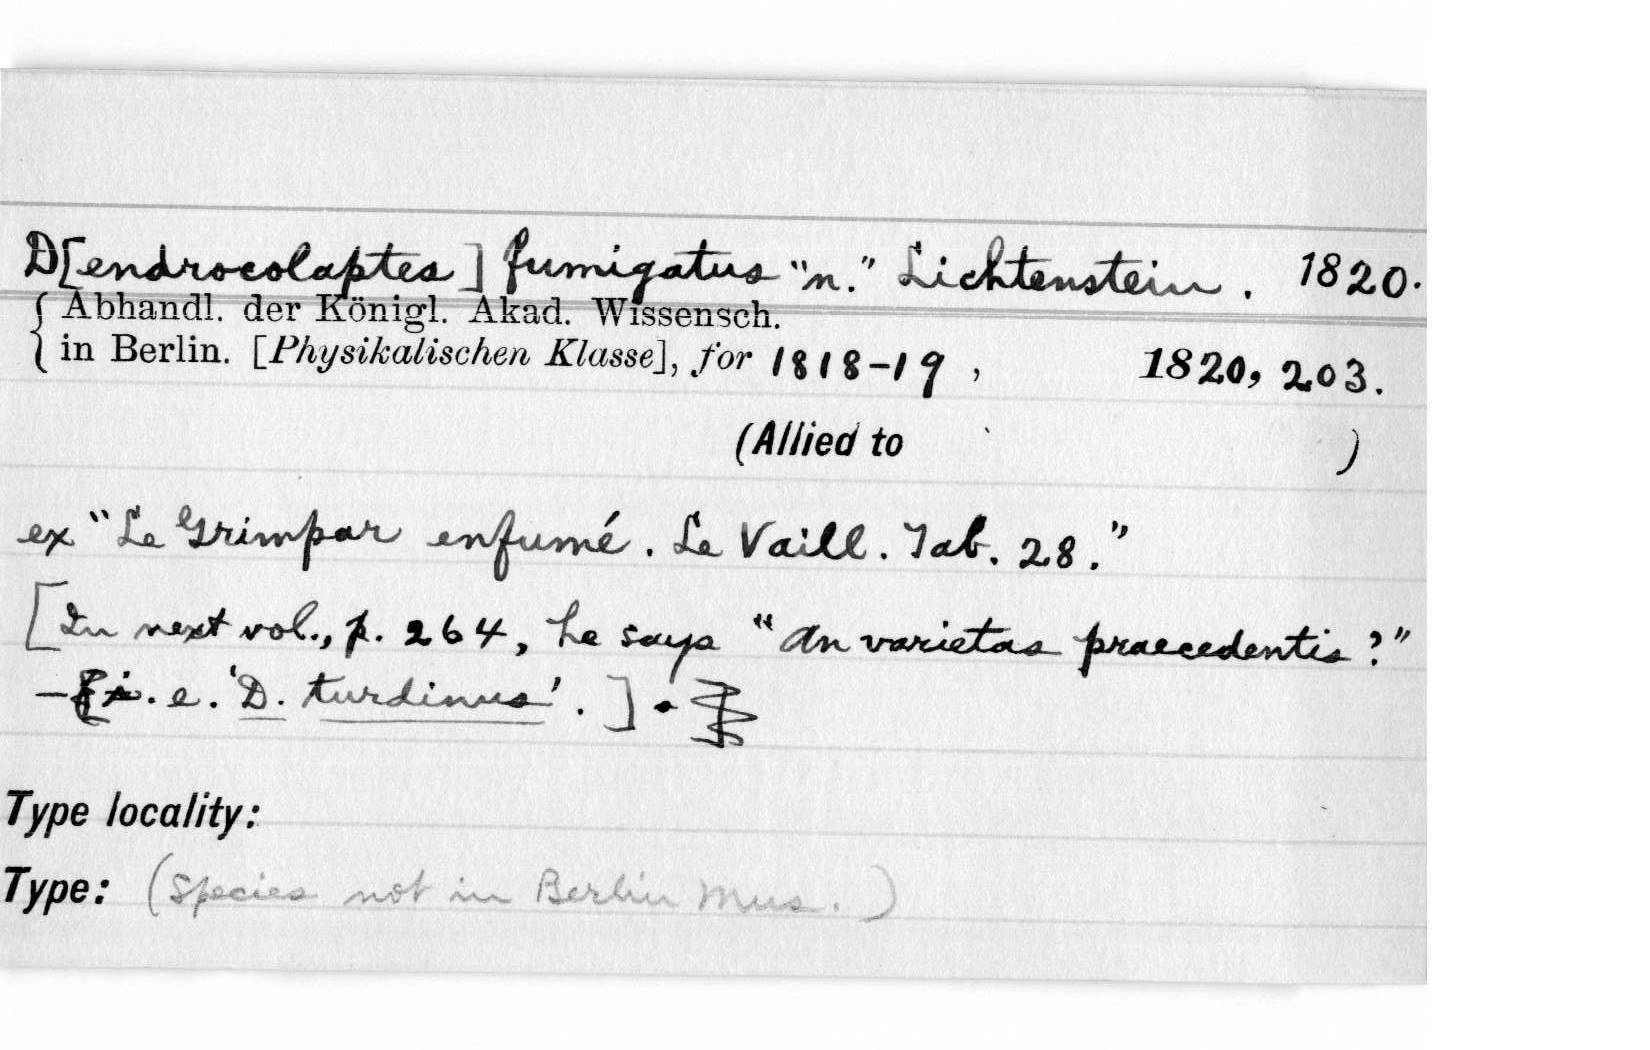 D[endrocolaptes] fumigatus "n." Lichtenstein. 1820.
{ Abhandl. der Königl. Akad. Wissensch.
in Berlin. [Physikalischen Klasse], for 1818-19, 1820, 203.
(Allied to )
ex "Le Grimpar enfumé. Le Vaill. Tab. 28."
[In next vol., p. 264, he says "An varietas praecedentis?"
– i.e. 'D. turdinus'.].
Type locality:
Type: (Species not in Berlin Mus.)